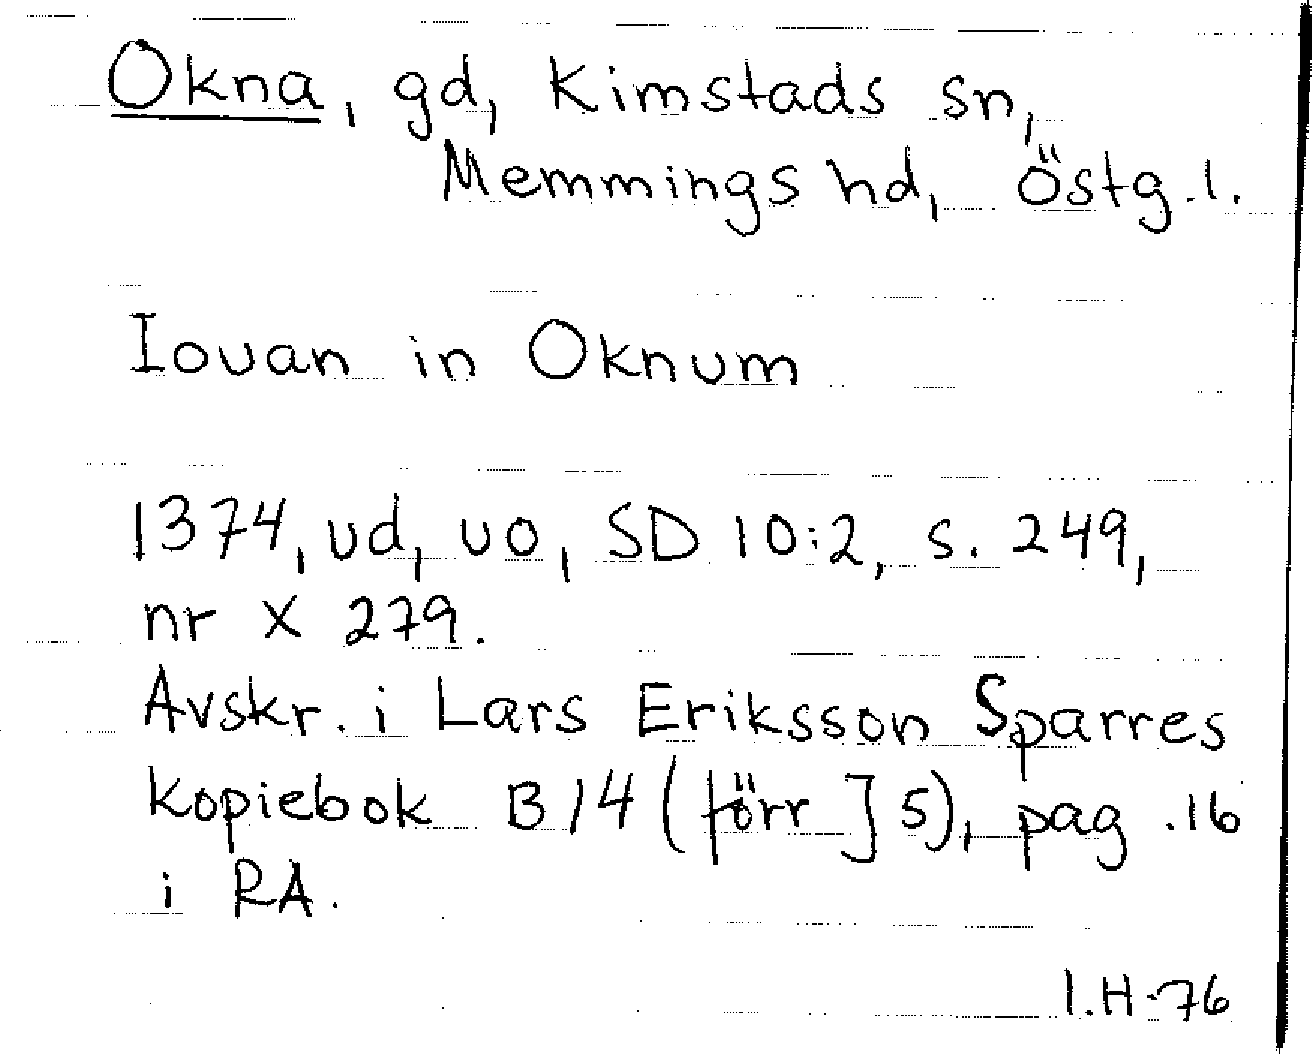 Okna, gd, Kimstads sn,
Memmings hd, Östg.l.
Iouan in Oknum
1374, ud, uo, SD 10:2, s. 249,
nr X 279.
Avskr. i Lars Eriksson Sparres
kopiebok B 14 (förr J 5), pag. 16
i RA.
I.H-76